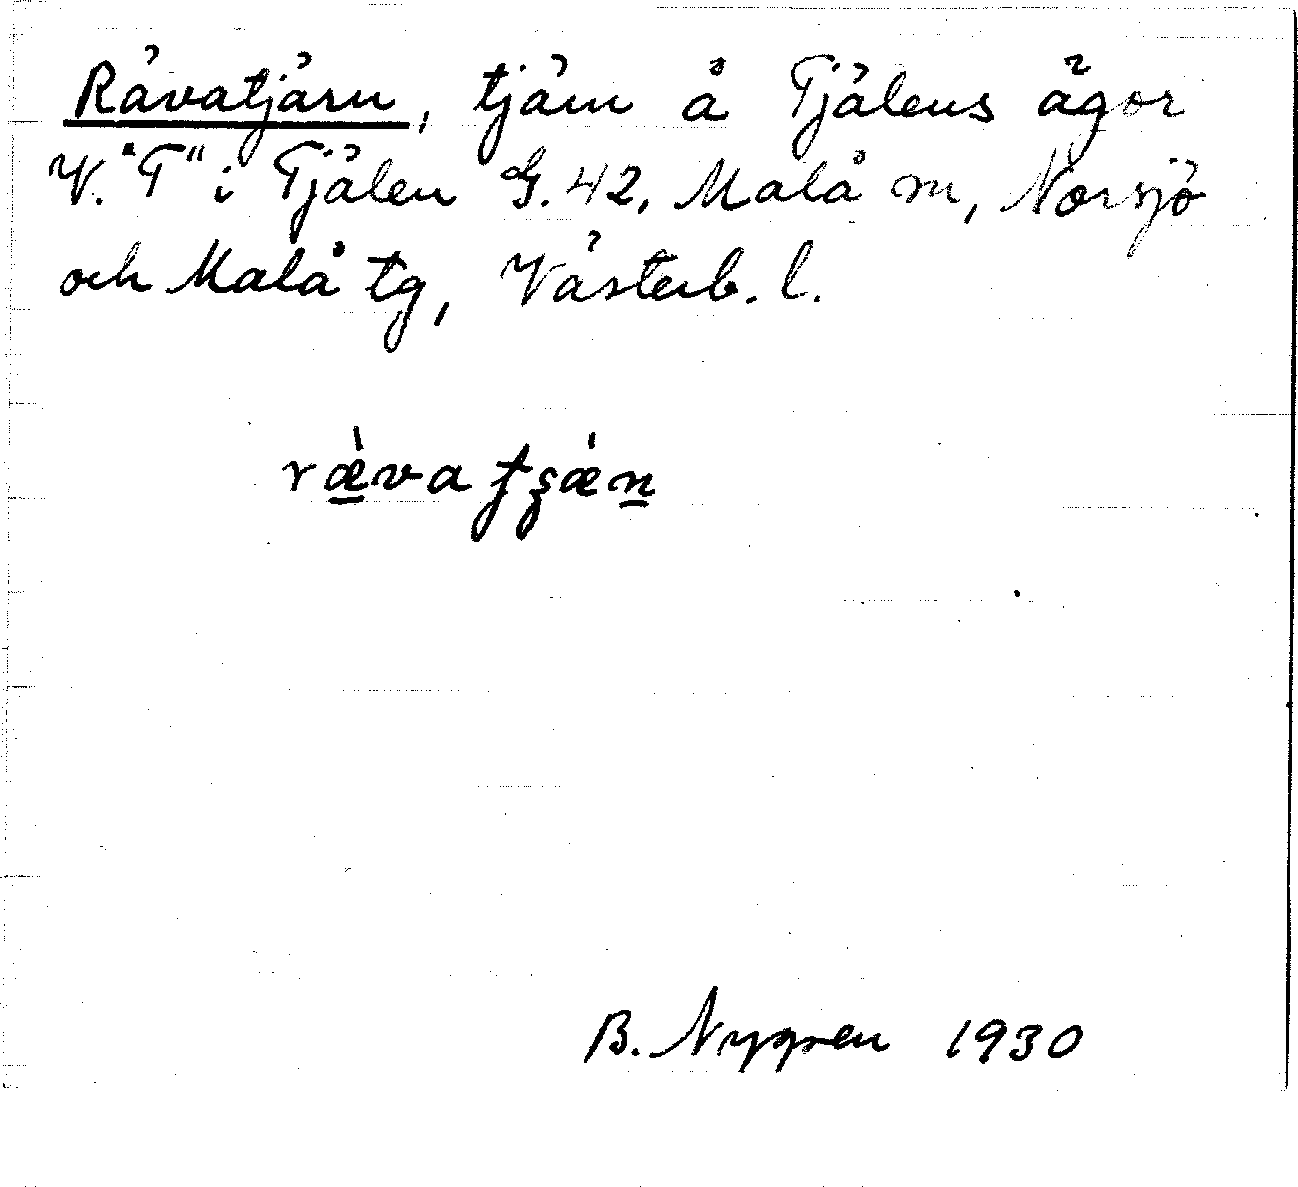 Rävatjärn, tjärn å Tjälens ägor
V. "T" i Tjälen G. 42, Malå sn, Norsjö
och Malå tg, Västerb. l.
rǽva tʂǽn
B. Nygren 1930